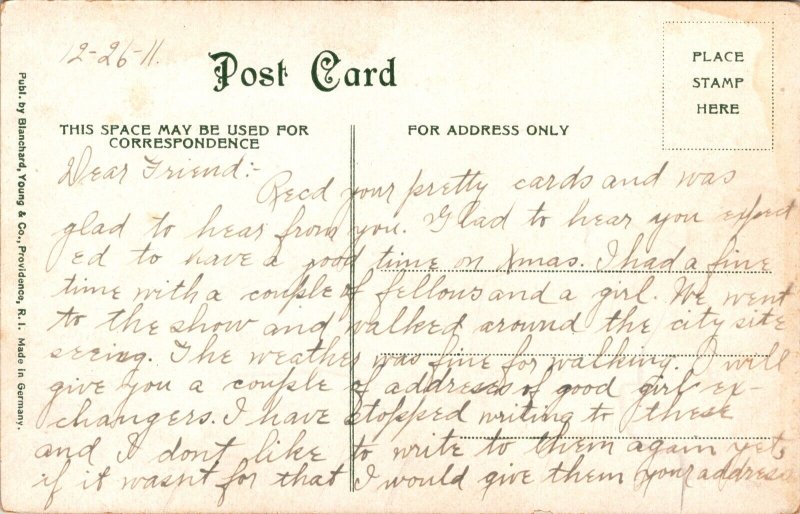 12-26-11.
Post Card
PLACE
STAMP
HERE
THIS SPACE MAY BE USED FOR
CORRESPONDENCE
FOR ADDRESS ONLY
Dear Friend:-
Recd your pretty cards and was
glad to hear from you. Glad to hear you expect
ed to have a good time on Xmas. I had a fine
time with a couple of fellows and a girl. We went
to the show and walked around the city site
seeing. The weather was fine for walking. I will
give you a couple of addresses of good girl ex-
changers. I have stopped writing to these
and I dont like to write to them again yet,
if it wasnt for that I would give them your address
Publ. by Blanchard, Young & Co., Providence, R. I. Made in Germany.